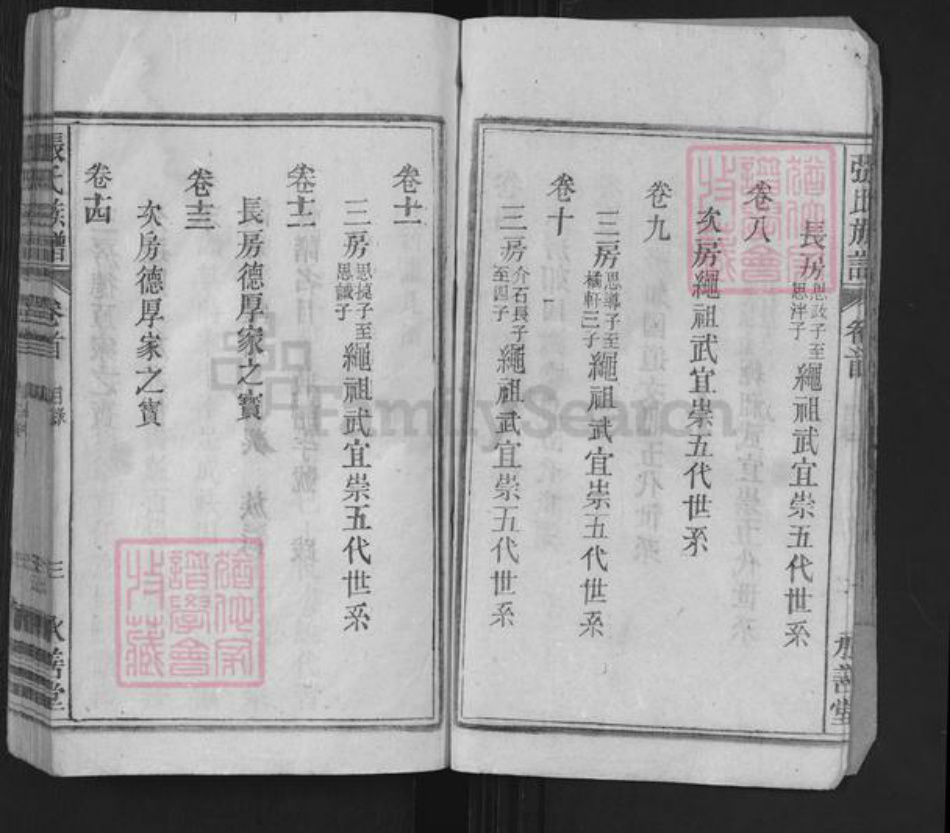 張氏族譜 卷首
長房思政子至思泮子繩祖武宜崇五代世系
卷八
次房繩祖武宜崇五代世系
卷九
三房思導子至橘軒三子繩祖武宜崇五代世系
卷十
三房介石長子至四子繩祖武宜崇五代世系
卷十一
三房思撓子至思誠子繩祖武宜崇五代世系
卷十二
長房德厚家之寳
卷十三
次房德厚家之寳
卷十四
張氏族譜 卷首 目錄 三 善堂
FamilySearch